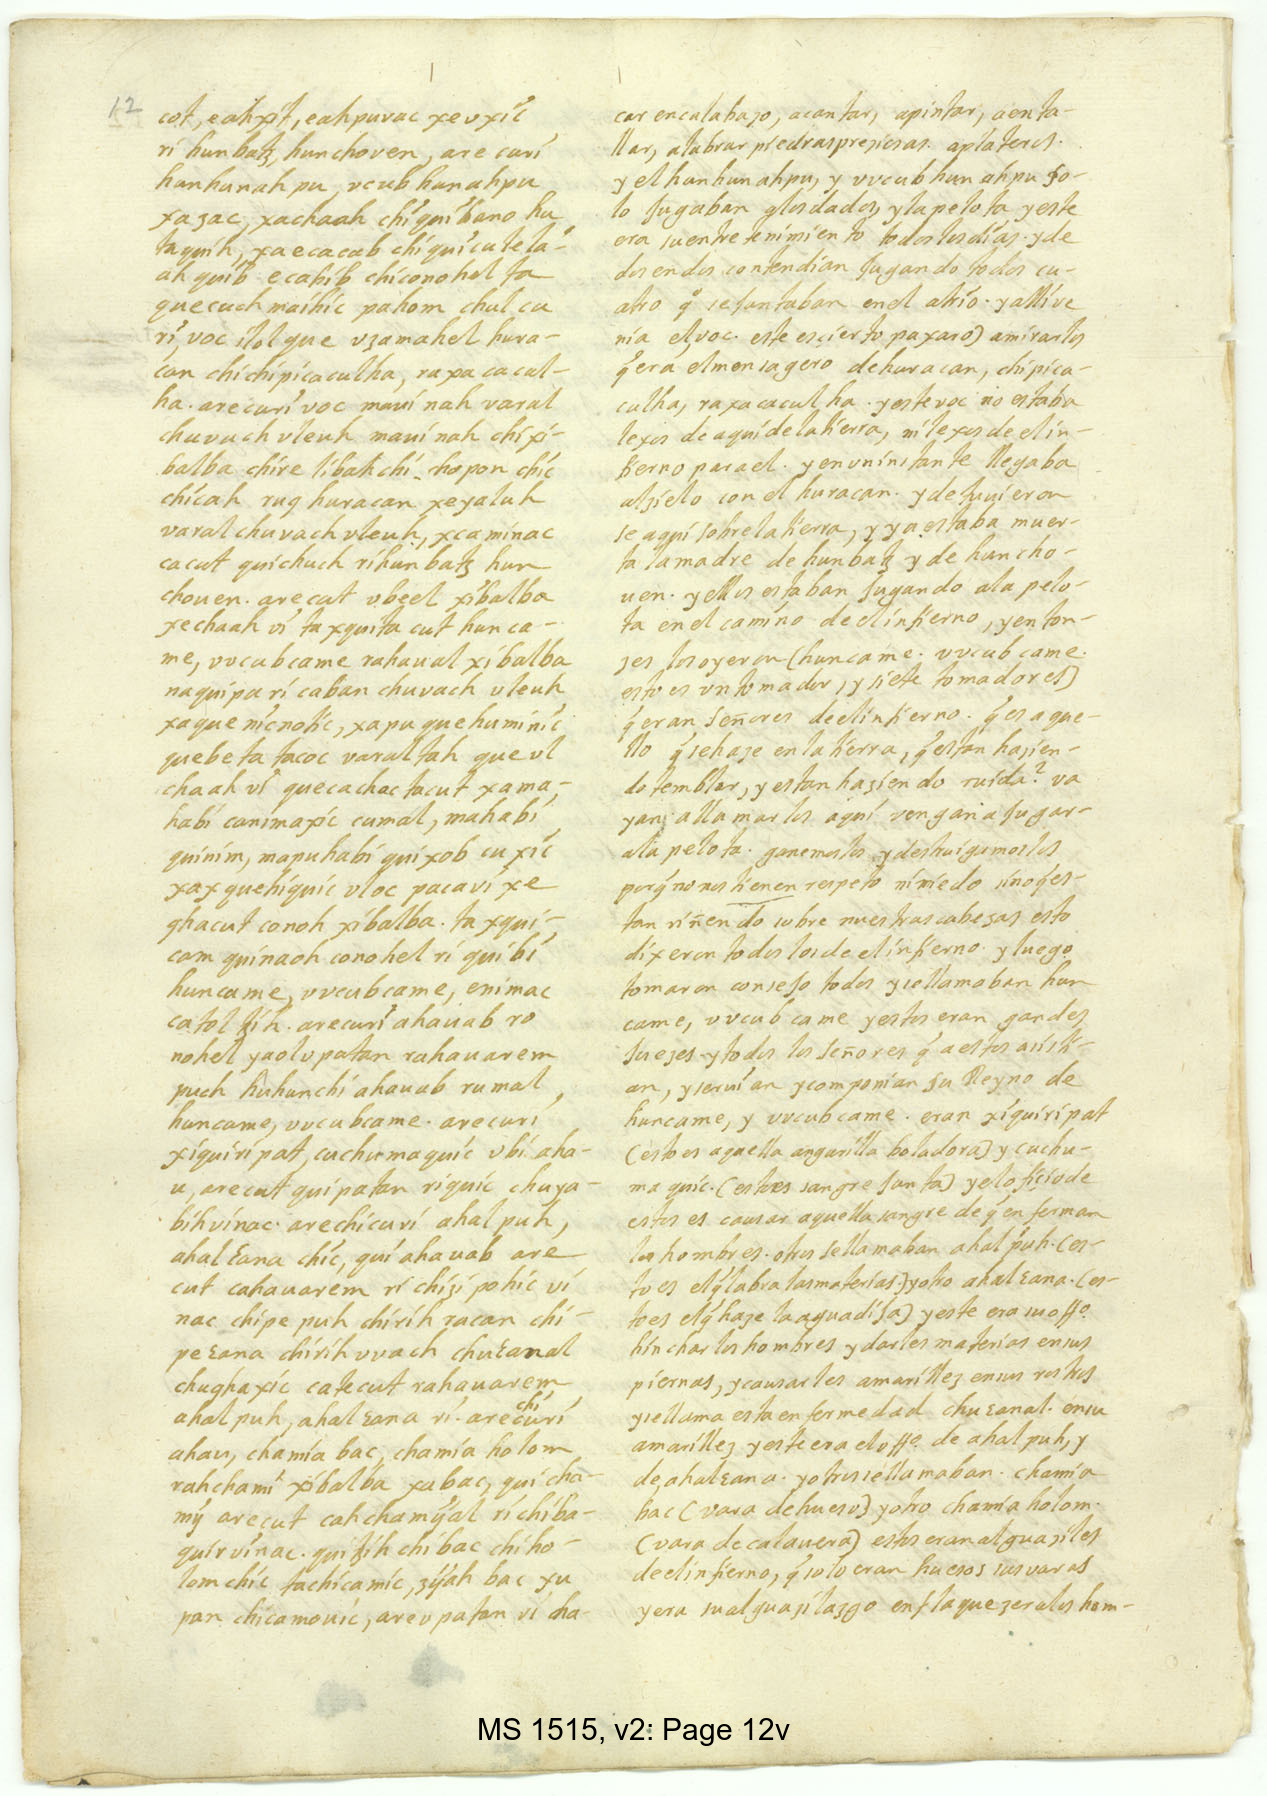 12
cot, eahxit, eahpuvac xevxic
ri hunbatz, hunchoven, are curi
hunhunahpu, vcubhunahpu
xazac, xachaah chiquibano hu
taquih, xaecacab chiquiculela-
ah quib ecahib chiconohel ta
quecuch maihic pahom chul cu
ri, voc ilol que vzamahel hura-
can chichipicaculha, raxa cacul-
ha. arecuri voc mauinah varal
chuvach vleuh mauinah chixi-
balba chire libatchi. chopon chic
chicah ruq huracan xeyaluh
varal chuvach vleuh, xcaminac
cacut quichuch rihunbatz hun
chouen. arecut vbeel xibalba
xechaah vi ta xquita cut hunca-
me, vvcubcame rahaual xibalba
naquipa ri caban chuvach vleuh
xaquenicnotic, xapu quehuminic
quebeta tacoc varaltah que vl
chaah vi quecachactacut xama-
habi canimaxic cumal, mahabi
quinim, mapuhabi quixob cu xic
xax quehiquic vloc pacavi xe
ghacut conoh xibalba. ta xqui-
cam quinaoh conohel ri quibi
huncame, vvcubcame, enimac
catol tzih. arecuri ahauab ro
nohel yaol vpatan rahauarem
puch huhunchi ahauab rumal
huncame, vvcubcame. arecuri
xiquiripat, cuchumaquic vbi aha-
u, arecut quipatan riquic chuya-
bihvinac. arechicuri ahalpuh,
ahalεana chic, qui ahauab are
cut cahauarem ri chizipohic vi
nac chipe puh chirih racan chi-
peεana chirih vvach chuεanal
chughaxic catecut rahauarem
ahalpuh, ahalεana ri. arechicuri
ahau, chamia bac, chamia holom
rahchami xibalba xabac, quicha-
my arecut cahchamyal richiba-
quirvinac. quitzih chibac chiho-
lomchic tachicamic, ziyah bac xu
pan chicamouic, arevpatan ri cha-
car encalabazo, acantar, apintar, aenta-
llar, alabrar piedraspreziosas. aplateros.
y el hunhunahpu, y vvcubhunahpu so-
lo jugaban alosdados, ylapelota yeste
era suentretenimiento todoslosdias. yde
dosendos contendian jugando todos cu-
atro q se juntaban enel atrio. yallive
nia elvoc. este escierto paxaro) amirarlos
qera elmensagero dehuracan, chipica-
culha, raxacaculha. yestevoc no estaba
lexos deaqui delatierra, nilexos de elin-
fierno parael. yenuninstante llegaba
alzielo con el huracan. ydetuuieron
se aqui sobrelatierra, y yaestaba muer-
ta lamadre de hunbatz y de huncho-
uen. yellos estaban jugando ala pelo-
ta enel camino deelinfierno, yenton-
zes losoyeron (huncame. vvcubcame.
estoes vntomador, y siete tomadores)
qeran señores deelinfierno. qes aque-
llo q sehaze enlatierra, qestan hazien-
dotemblar, y estan haziendo ruido? va
yan allamarlos aqui vengan a jugar-
ala pelota. ganemoslos, ydestruigamoslos
porqnonostienen respeto nimiedo sinoqes-
tan riñendo sobre nuestrascabezas esto
dixeron todos losde elinfierno. y luego
tomaron consejo todos ysellamaban hun
came, vvcubcame yestos eran gandes
juezes. ytodos los señores q aestos asisti-
an, yseruian ycomponian su Reyno de
huncame, y vvcubcame. eran xiquiripat
(estoes aquella angarilla boladora) y cuchu-
maquic. (estoes sangre junta) yeloficiode
estos es causar aquella sangre de qenferman
los hombres. otros sellamaban ahalpuh. (es-
toes elqlabra lasmaterias.) yotro ahalεana. (es-
toes elqhaze laaguadija) yeste era suoffo.
hincharloshombres ydarles materias ensus
piernas, ycausarles amarillez ensus rostros
ysellama estaenfermedad chuεanal. ensu
amarillez yesteera eloffo. de ahalpuh, y
deahalεana. yotrossellamaban. chamia
bac (vara dehueso) yotro chamiaholom.
(vara decalauera) estos eranalguaziles
deelinfierno, q solo eran huesos susvaras
yera sualguazilazgo enflaquezeralos hom-
MS 1515, v2: Page 12v